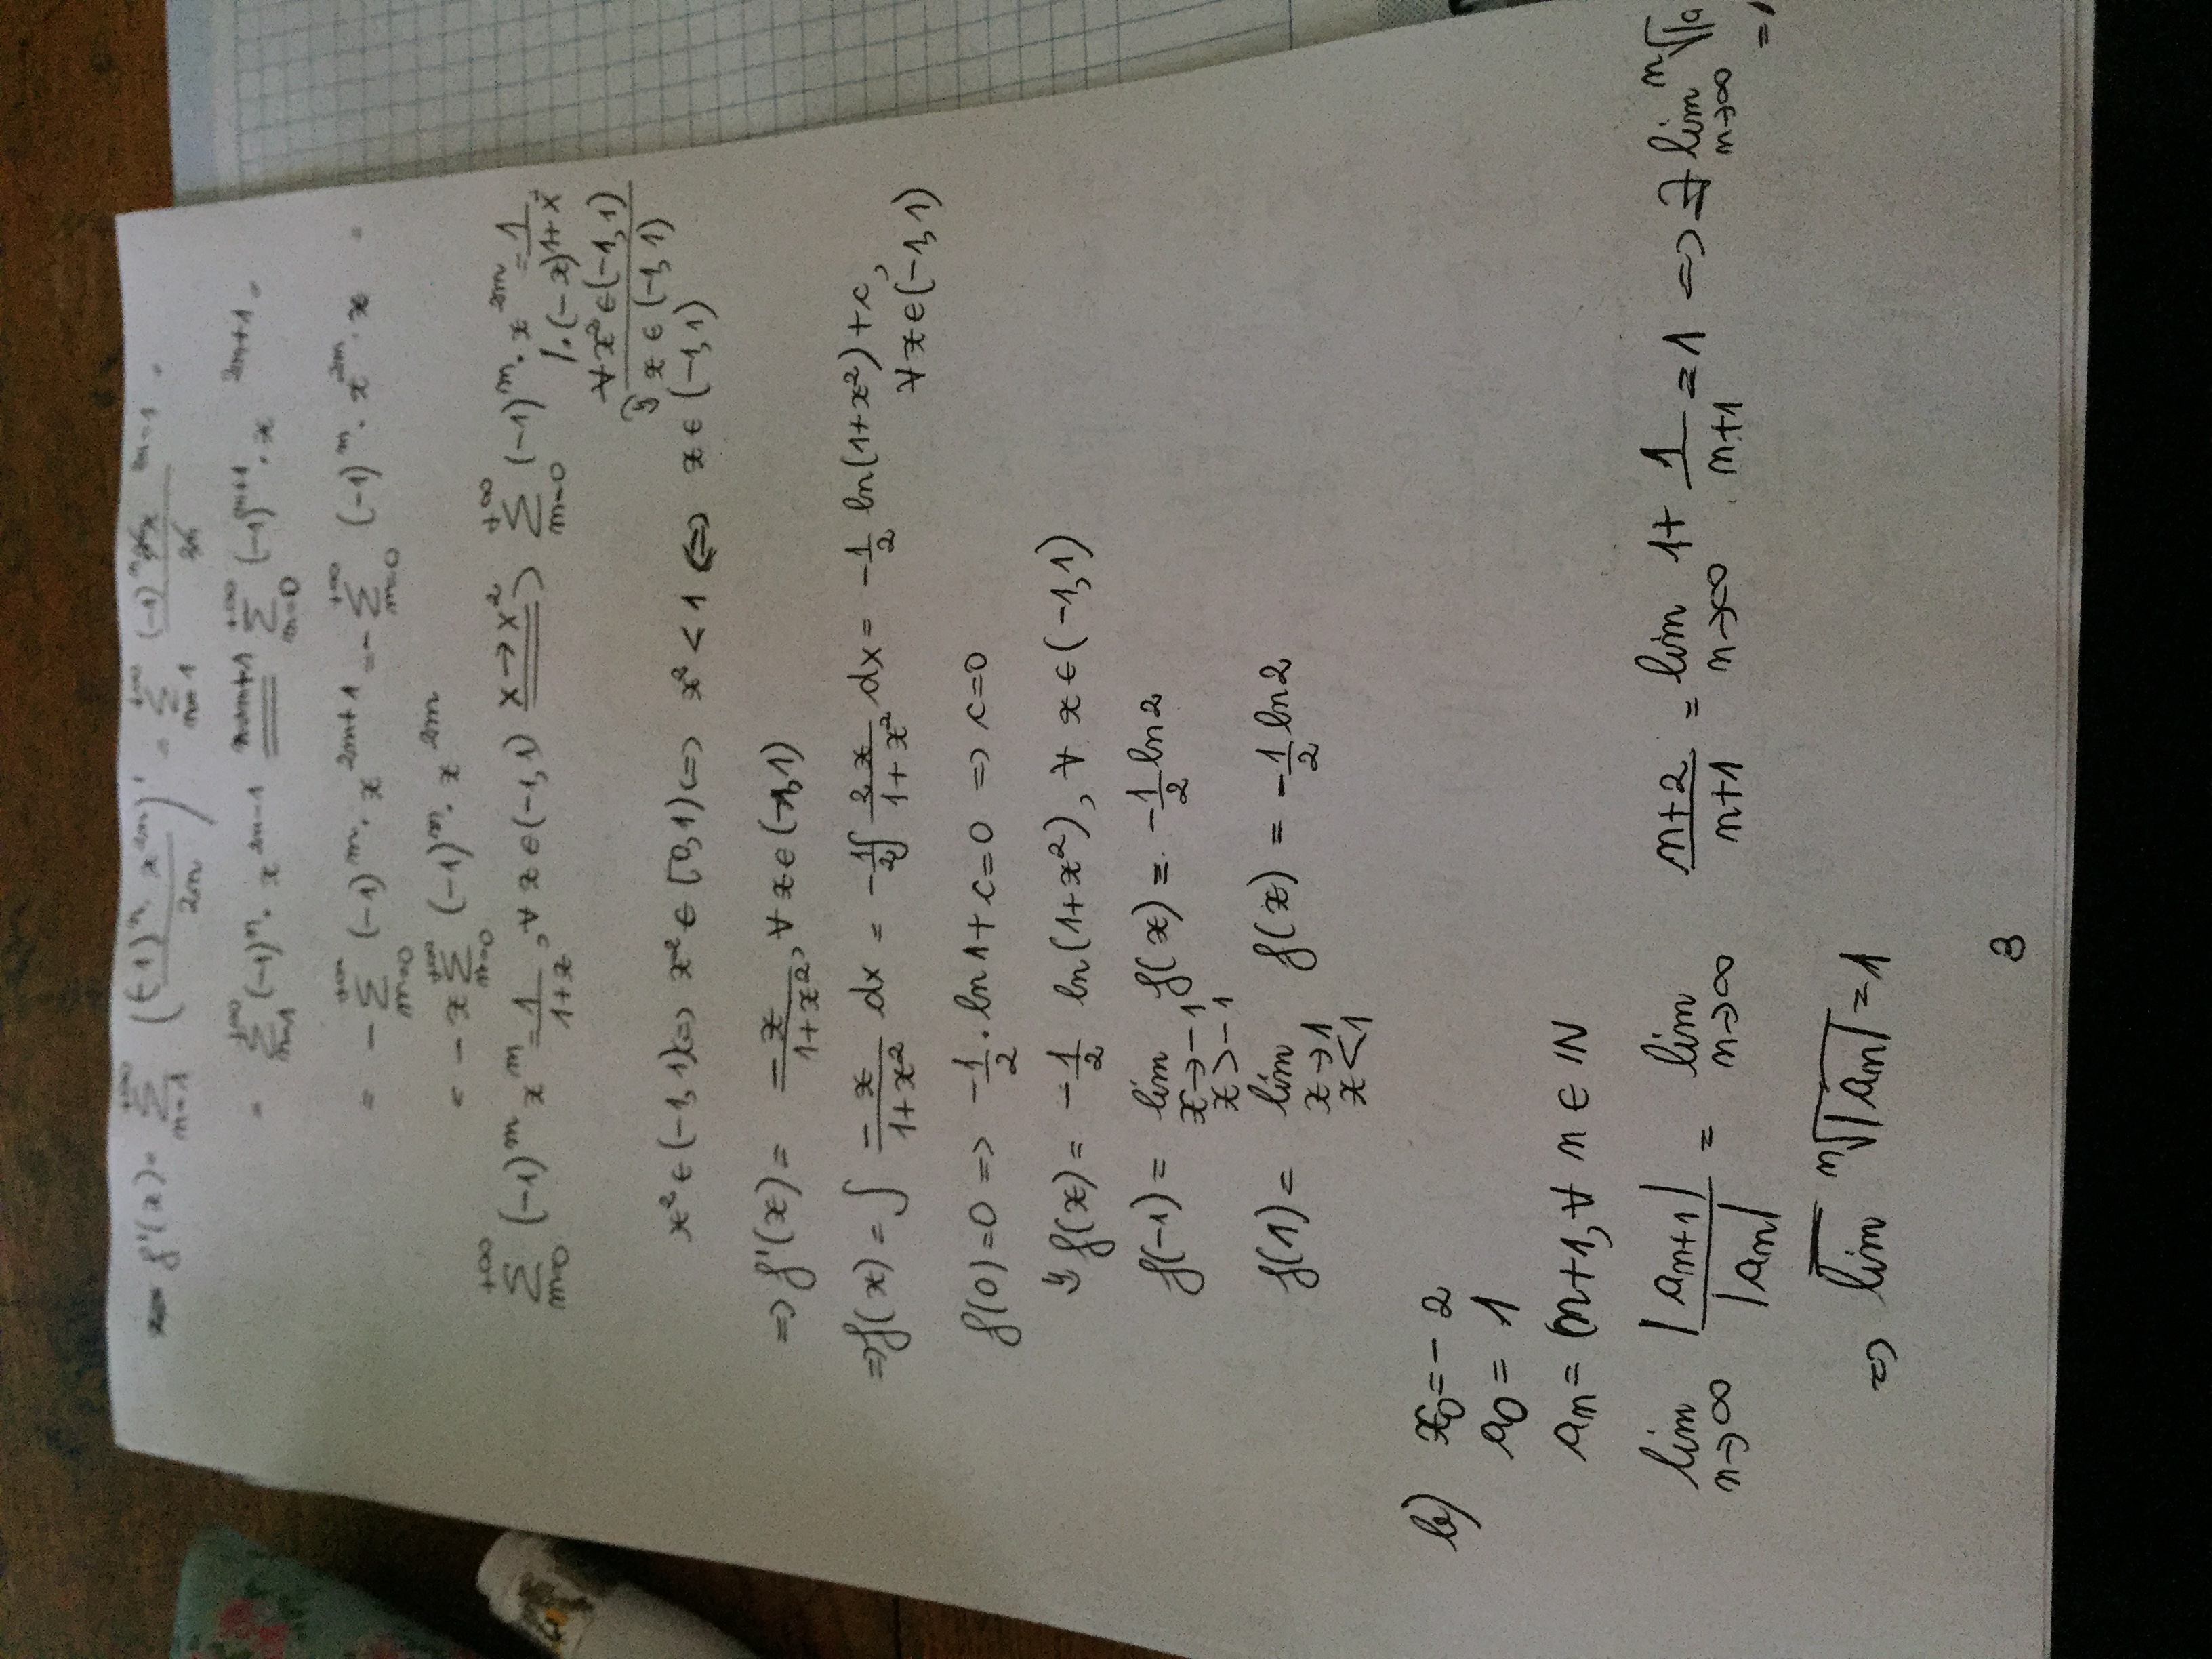 f'(x) = \sum_{n=1}^{+\infty} \left( \frac{(-1)^n \cdot x^{2n}}{2n} \right)' = \sum_{n=1}^{+\infty} \frac{(-1)^n 2n x^{2n-1}}{2n} =
= \sum_{n=1}^{+\infty} (-1)^n \cdot x^{2n-1} \xlongequal{n=m+1} \sum_{m=0}^{+\infty} (-1)^{m+1} \cdot x^{2m+1} =
= - \sum_{m=0}^{+\infty} (-1)^m \cdot x^{2m+1} = - \sum_{m=0}^{+\infty} (-1)^m \cdot x^{2m} \cdot x =
= - x \sum_{m=0}^{+\infty} (-1)^m \cdot x^{2m}
\sum_{m=0}^{+\infty} (-1)^m x^m = \frac{1}{1+x}, ∀ x ∈ (-1,1) \xRightarrow{x → x^2} \sum_{m=0}^{+\infty} (-1)^m \cdot x^{2m} = \frac{1}{1+x^2}
/·(-x)
∀ x^2 ∈ (-1,1)
x ∈ (-1,1)
x^2 ∈ (-1,1) <=> x^2 ∈ [0,1) <=> x^2 < 1 <=> x ∈ (-1,1)
=> f'(x) = \frac{-x}{1+x^2}, ∀ x ∈ (-1,1)
=> f(x) = ∫ \frac{-x}{1+x^2} dx = -\frac{1}{2} ∫ \frac{2x}{1+x^2} dx = -\frac{1}{2} ln(1+x^2) + c,
∀ x ∈ (-1,1)
f(0) = 0 => -\frac{1}{2} · ln 1 + c = 0 => c = 0
f(x) = -\frac{1}{2} ln(1+x^2), ∀ x ∈ (-1,1)
f(-1) = \lim_{x → -1, x > -1} f(x) = -\frac{1}{2} ln 2
f(1) = \lim_{x → 1, x < 1} f(x) = -\frac{1}{2} ln 2
b) x_0 = - 2
a_0 = 1
a_n = (n+1, ∀ n ∈ IN
\lim_{n → ∞} \frac{|a_{n+1}|}{|a_n|} = \lim_{n → ∞} \frac{n+2}{n+1} = \lim_{n → ∞} 1 + \frac{1}{n+1} = 1 => ∃ \lim_{n → ∞} \sqrt[n]{|a
= 1
=> \overline{lim} \sqrt[n]{|a_n|} = 1
3